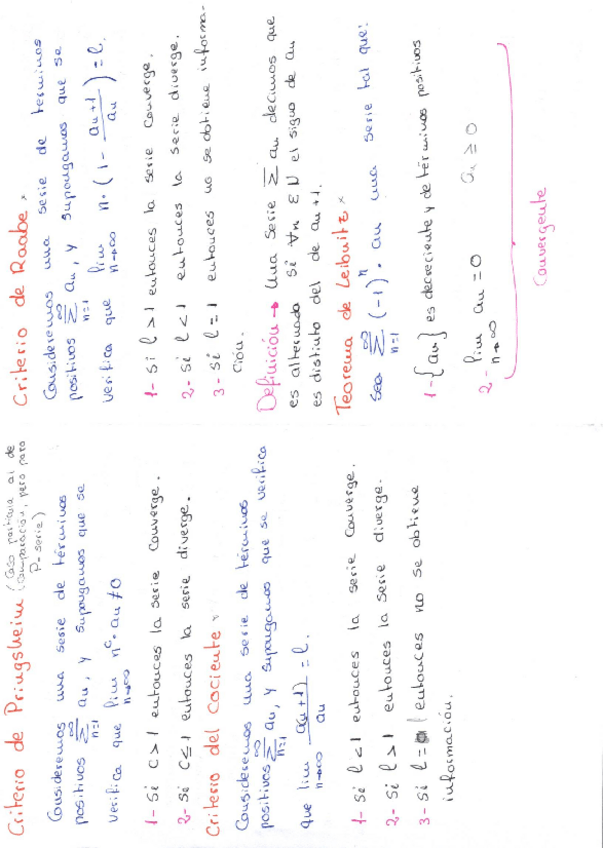 Criterio de Pringsheim (Caso particular al de
comparación, pero para
P-serie)
Consideremos una serie de términos
positivos ∑_{n=1}^{∞} an, y supongamos que se
verifica que lim_{n→∞} n^c · an ≠ 0
1- Si C > 1 entonces la serie converge.
2- Si C ≤ 1 entonces la serie diverge.
Criterio del Cociente
Consideremos una serie de términos
positivos ∑_{n=1}^{∞} an, y supongamos que se verifica
que lim_{n→∞} a(n+1)/an = l.
1- Si l < 1 entonces la serie converge.
2- Si l > 1 entonces la serie diverge.
3- Si l = 1 entonces no se obtiene
información.
Criterio de Raabe
Consideremos una serie de términos
positivos ∑_{n=1}^{∞} an, y supongamos que se
verifica que lim_{n→∞} n · (1 - an+1/an) = l.
1- Si l > 1 entonces la serie converge.
2- Si l < 1 entonces la serie diverge.
3- Si l = 1 entonces no se obtiene informa-
ción.
Definición → Una serie ∑ an decimos que
es alternada si ∀n ∈ N el signo de an
es distinto del de an+1.
Teorema de Leibnitz
Sea ∑_{n=1}^{∞} (-1)^n · an una serie tal que:
1- {an} es decreciente y de términos positivos
2- lim_{n→∞} an = 0 an ≥ 0
Convergente